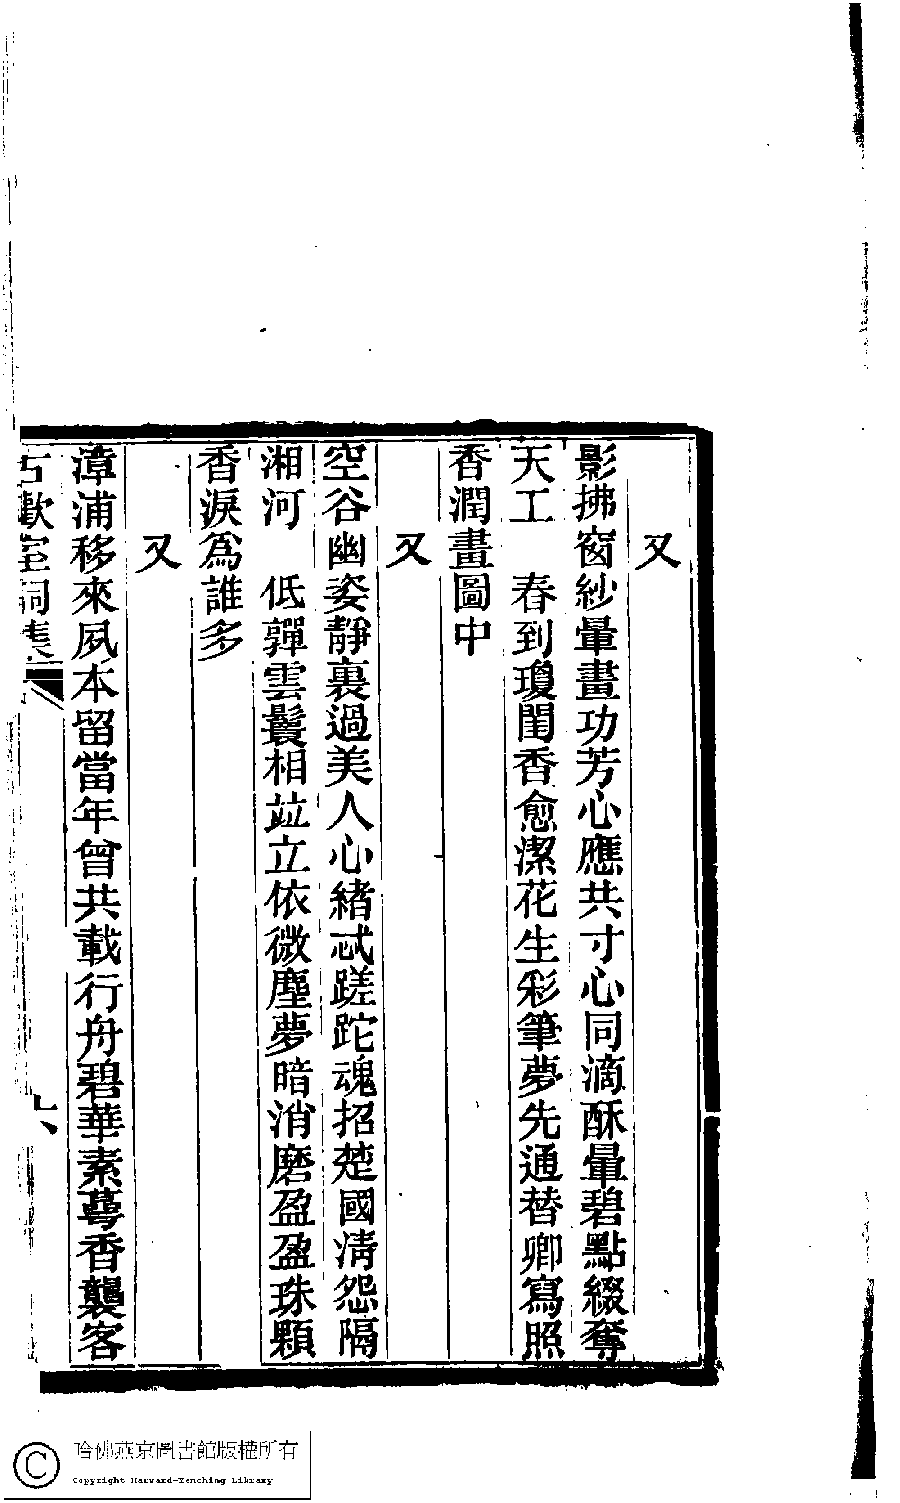 又
影拂窗紗暈畫功芳心應共寸心同滴酥暈碧點綴奪
天工　春到瓊閨香愈潔花生彩筆夢先通替卿寫照
香潤畫圖中
又
空谷幽姿靜裏過美人心緒忒蹉跎魂招楚國凊怨隔
湘河　低嚲雲鬟相竝立依微塵夢暗消磨盈盈珠顆
香淚為誰多
又
漳浦移來夙本留當年曾共載行舟碧華素蕚香襲客
古歡室詞集
六
哈佛燕京圖書館版權所有
Copyright Harvard-Yenching Library